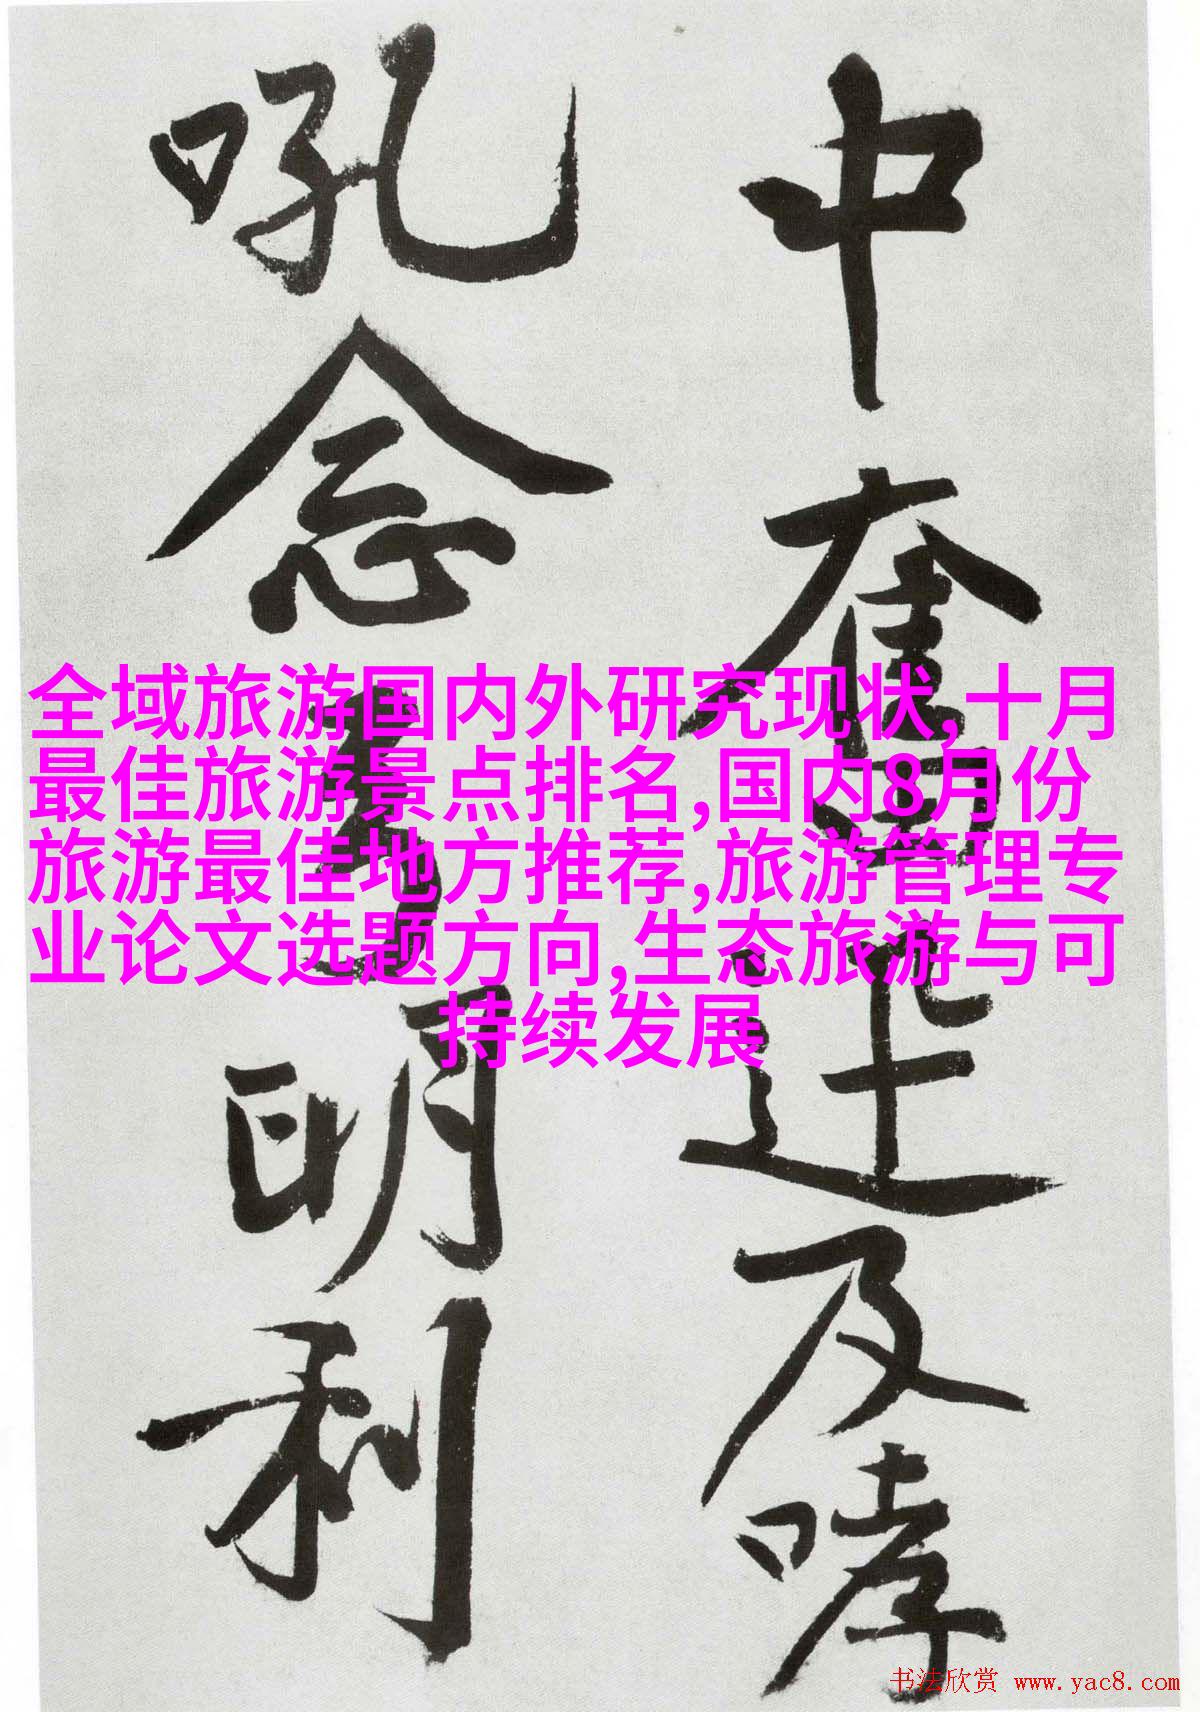 中奮迅及哮
吼念乎明利
全域旅游国内外研究现状,十月
最佳旅游景点排名,国内8月份
旅游最佳地方推荐,旅游管理专
业论文选题方向,生态旅游与可
持续发展
书法欣赏 www.yac8.com